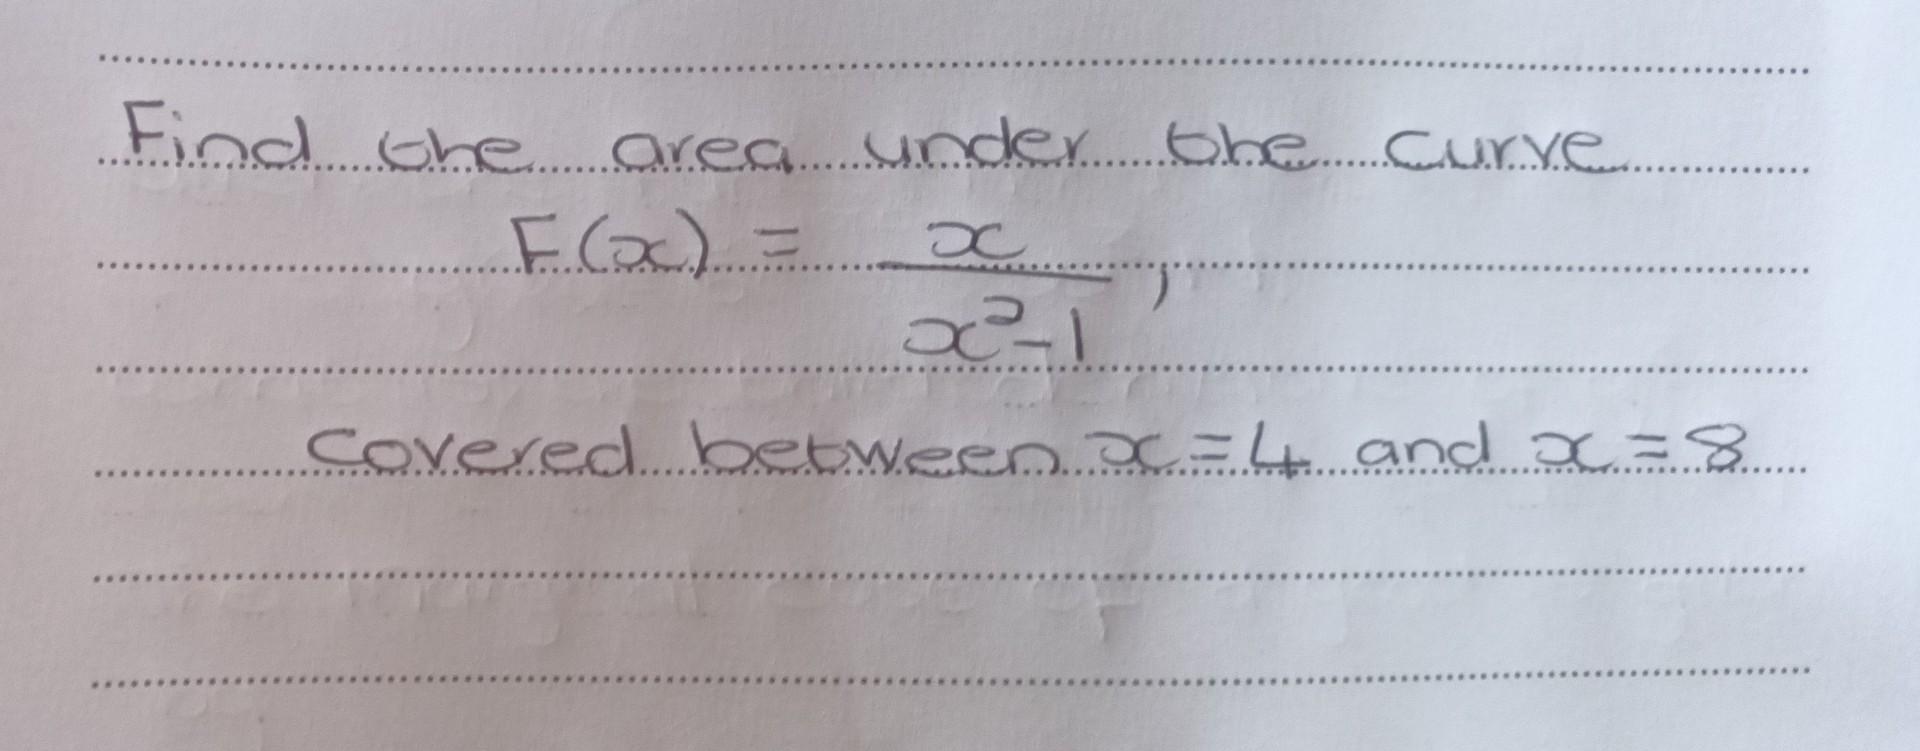 Find the area under the curve
F(x) = x / x²-1 ,
covered between x=4 and x=8